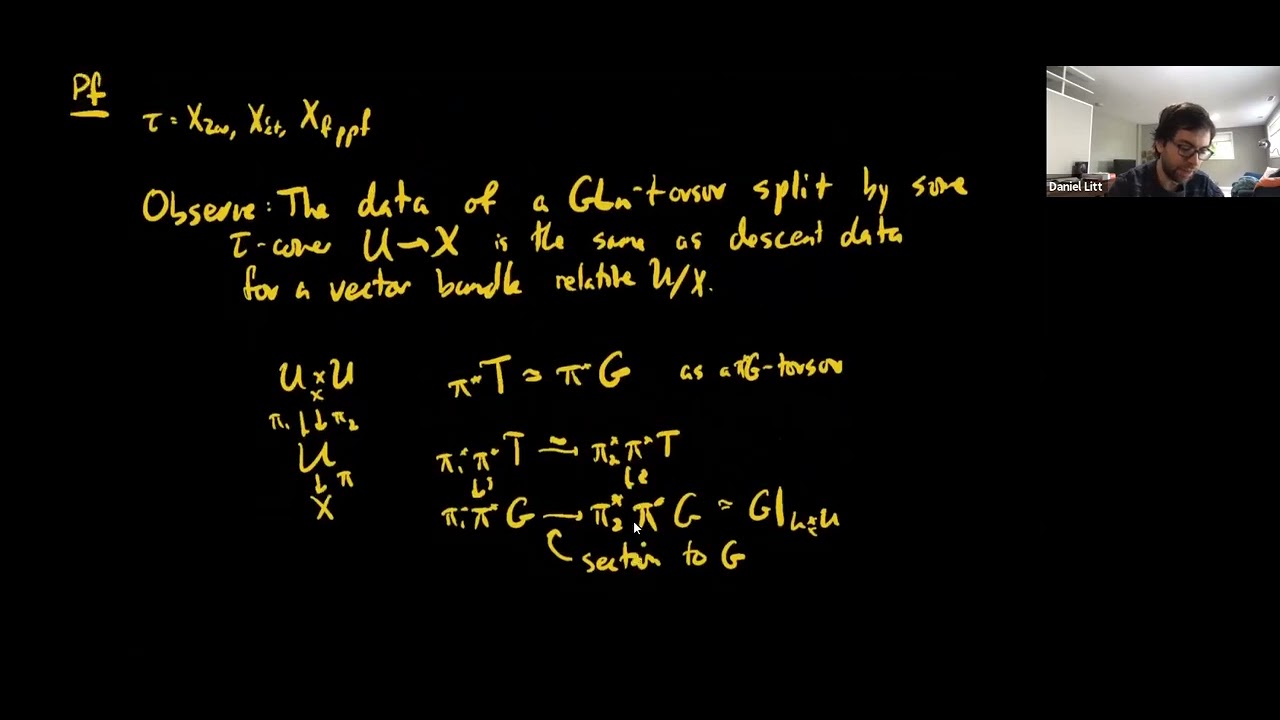 Pf
τ = X_Zar, X_ét, X_fppf
Observe: The data of a GL_n-torsor split by some
τ-cover U → X is the same as descent data
for a vector bundle relative U/X.
U ×_X U
π₁ ↓↓ π₂
U
↓ π
X
π*T ≃ π*G as a π*G-torsor
π₁*π*T ⥲ π₂*π*T
↓≀ ↓≀
π₁*π*G → π₂*π*G ≃ G|_{U×_X U}
section to G
Daniel Litt